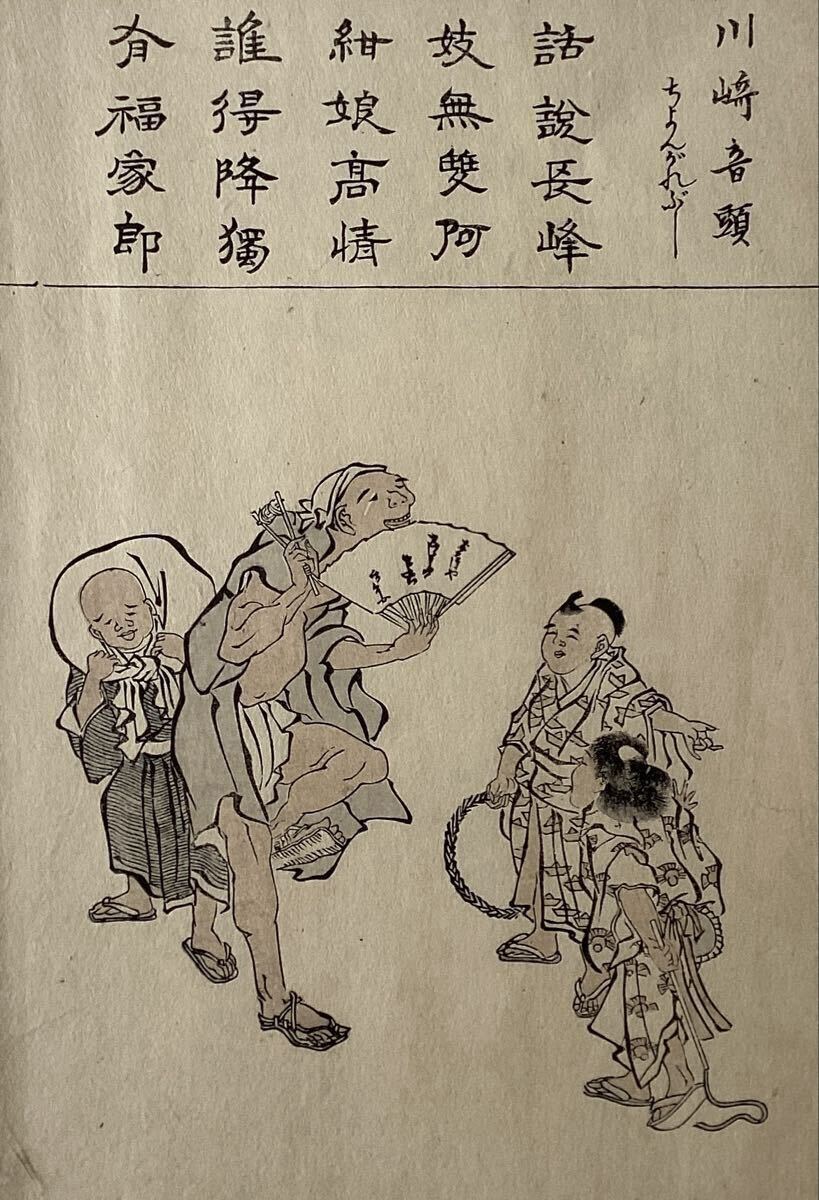 川崎音頭
ちよんがれぶし
話說長峰
妓無雙阿
紺娘高情
誰得降獨
有福家郎